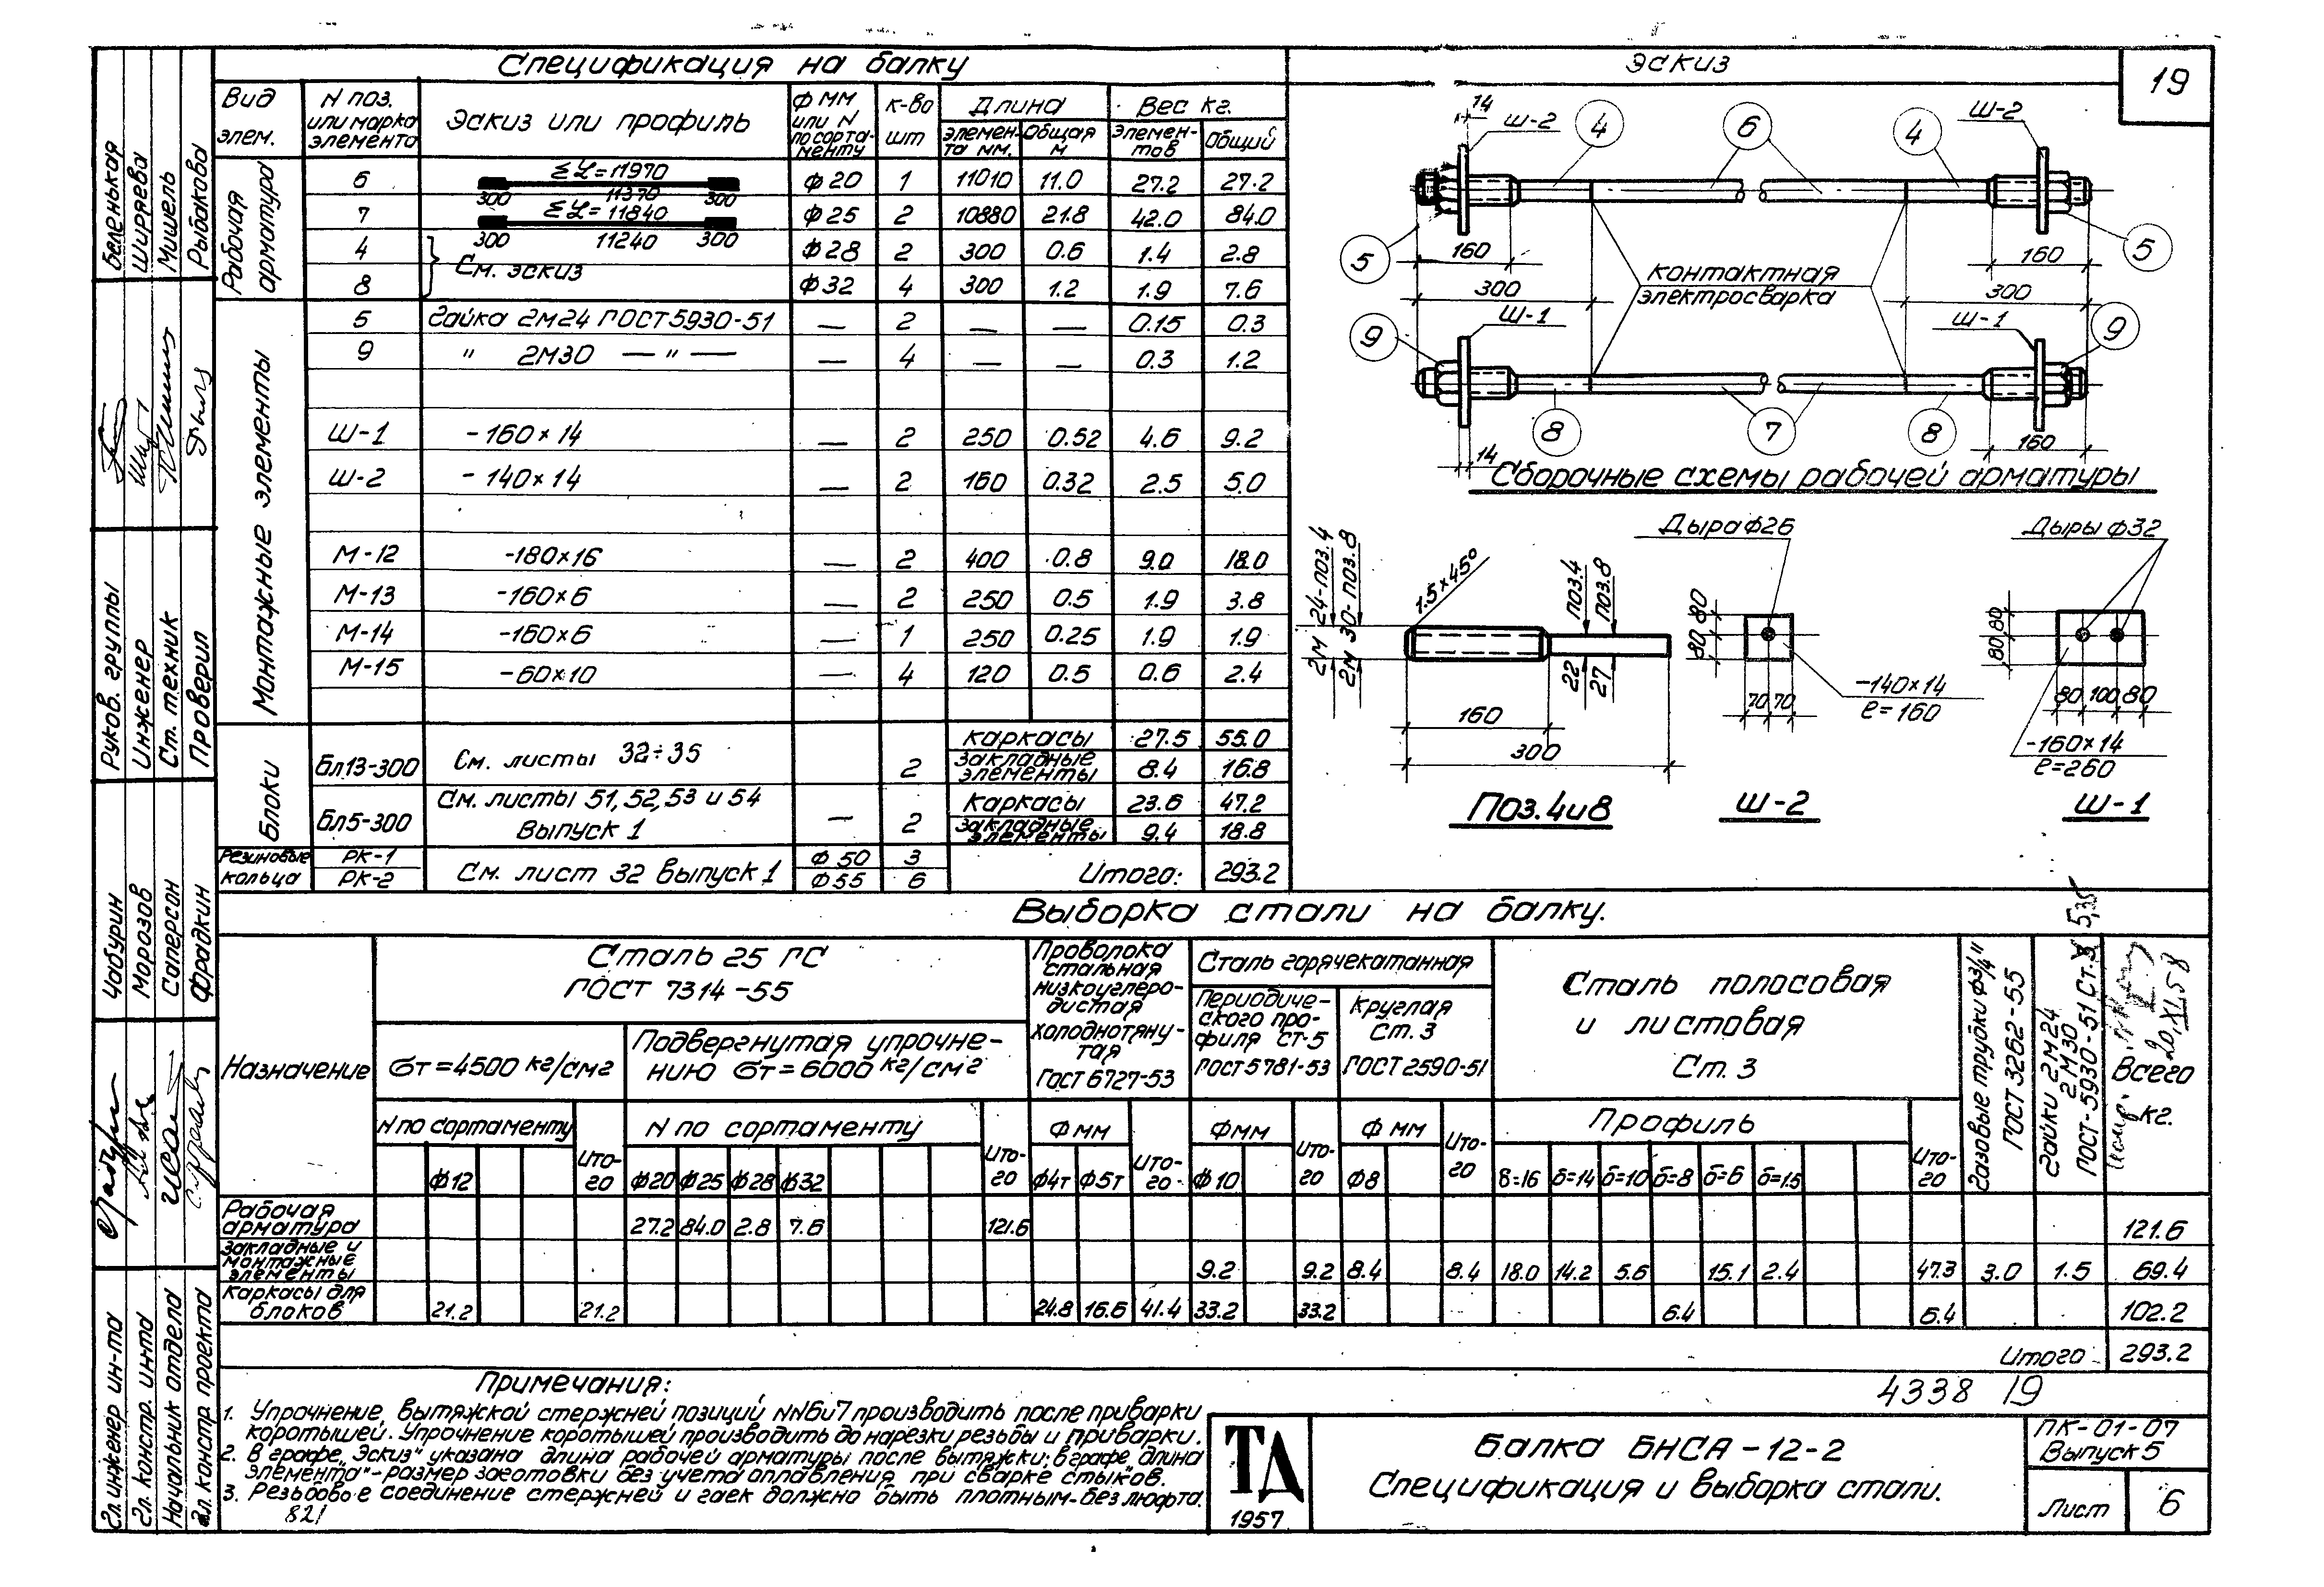 Спецификация на балку
Эскиз
19
Вид элем. | N поз. или марка элемента | Эскиз или профиль | Ф мм или N по сорта-менту | к-во шт | Длина | Вес кг.
элемен-та мм. | Общая м | Элемен-тов | Общий
Рабочая арматура
6 | Σℒ=11970 300 11370 300 | ф20 | 1 | 11010 | 11.0 | 27.2 | 27.2
7 | Σℒ=11840 300 11240 300 | ф25 | 2 | 10880 | 21.8 | 42.0 | 84.0
4 | См. эскиз | ф28 | 2 | 300 | 0.6 | 1.4 | 2.8
8 | ф32 | 4 | 300 | 1.2 | 1.9 | 7.6
Монтажные элементы
5 | Гайка 2М24 ГОСТ 5930-51 | — | 2 | — | — | 0.15 | 0.3
9 | " 2М30 — " — | — | 4 | — | — | 0.3 | 1.2
Ш-1 | -160×14 | — | 2 | 250 | 0.52 | 4.6 | 9.2
Ш-2 | -140×14 | — | 2 | 160 | 0.32 | 2.5 | 5.0
М-12 | -180×16 | — | 2 | 400 | 0.8 | 9.0 | 18.0
М-13 | -160×6 | — | 2 | 250 | 0.5 | 1.9 | 3.8
М-14 | -160×6 | — | 1 | 250 | 0.25 | 1.9 | 1.9
М-15 | -60×10 | — | 4 | 120 | 0.5 | 0.6 | 2.4
Блоки
Бл13-300 | См. листы 32÷35 | 2 | каркасы | 27.5 | 55.0
Закладные элементы | 8.4 | 16.8
Бл5-300 | См. листы 51, 52, 53 и 54 Выпуск 1 | — | 2 | Каркасы | 23.6 | 47.2
Закладные элементы | 9.4 | 18.8
Резиновые кольца | РК-1 | См. лист 32 выпуск 1 | Ф50 | 3
РК-2 | Ф55 | 6 | Итого: | 293.2
14 Ш-2 4 6 4 Ш-2
5 160 160 5
300 контактная электросварка 300
9 Ш-1 Ш-1 9
8 7 8
14 160
Сборочные схемы рабочей арматуры
2М 24-поз.4
2М 30-поз.8
1.5×45°
поз.4 поз.8
22 27
160
300
Поз.4и8
Дыра ф26
80 80
70 70
-140×14
ℓ=160
Ш-2
Дыры ф32
80 80
80 100 80
-160×14
ℓ=260
Ш-1
Выборка стали на балку.
Назначение
Сталь 25 ГС
ГОСТ 7314-55
бт=4500 кг/см2
Подвергнутая упрочне-
нию бт=6000 кг/см2
Проволока стальная низкоуглеро-дистая холоднотяну-тая ГОСТ 6727-53
Сталь горячекатанная
Периодиче-ского про-филя Ст-5 ГОСТ 5781-53
Круглая Ст. 3 ГОСТ 2590-51
Сталь полосовая
и листовая
Ст. 3
Газовые трубки ф3/4" ГОСТ 3262-55
Гайки 2М24 2М30 ГОСТ-5930-51 Ст.3
5,35
20.XI.58
Всего кг.
N по сортаменту | N по сортаменту | Ф мм | Фмм | Ф мм | Профиль
ф12 | Ито-го | ф20 | ф25 | ф28 | ф32 | Ито-го | ф4т | ф5т | Ито-го | ф10 | Ито-го | ф8 | Ито-го | δ=16 | δ=14 | δ=10 | δ=8 | δ=6 | δ=1.5 | Ито-го
Рабочая арматура | 27.2 | 84.0 | 2.8 | 7.6 | 121.6 | 121.6
Закладные и монтажные элементы | 9.2 | 9.2 | 8.4 | 8.4 | 18.0 | 14.2 | 5.6 | 15.1 | 2.4 | 47.3 | 3.0 | 1.5 | 69.4
Каркасы для блоков | 21.2 | 21.2 | 24.8 | 16.6 | 41.4 | 33.2 | 33.2 | 6.4 | 6.4 | 102.2
Итого | 293.2
4338 19
Примечания:
1. Упрочнение вытяжкой стержней позиций NN6и7 производить после приварки
коротышей. Упрочнение коротышей производить до нарезки резьбы и приварки.
2. В графе „Эскиз" указана длина рабочей арматуры после вытяжки; в графе „длина
элемента"-размер заготовки без учета оплавления при сварке стыков.
3. Резьбовое соединение стержней и гаек должно быть плотным-без люфта.
821
ТА
1957
Балка БНСА-12-2
Спецификация и выборка стали.
ПК-01-07
Выпуск 5
Лист 6
Руков. группы Беленькая
Инженер Ширяева
Ст. техник Мишель
Проверил Рыбакова
Гл. инженер ин-та Чабурин
Гл. констр. ин-та Морозов
Начальник отдела Саперсон
Гл. констр. проекта Фрадкин